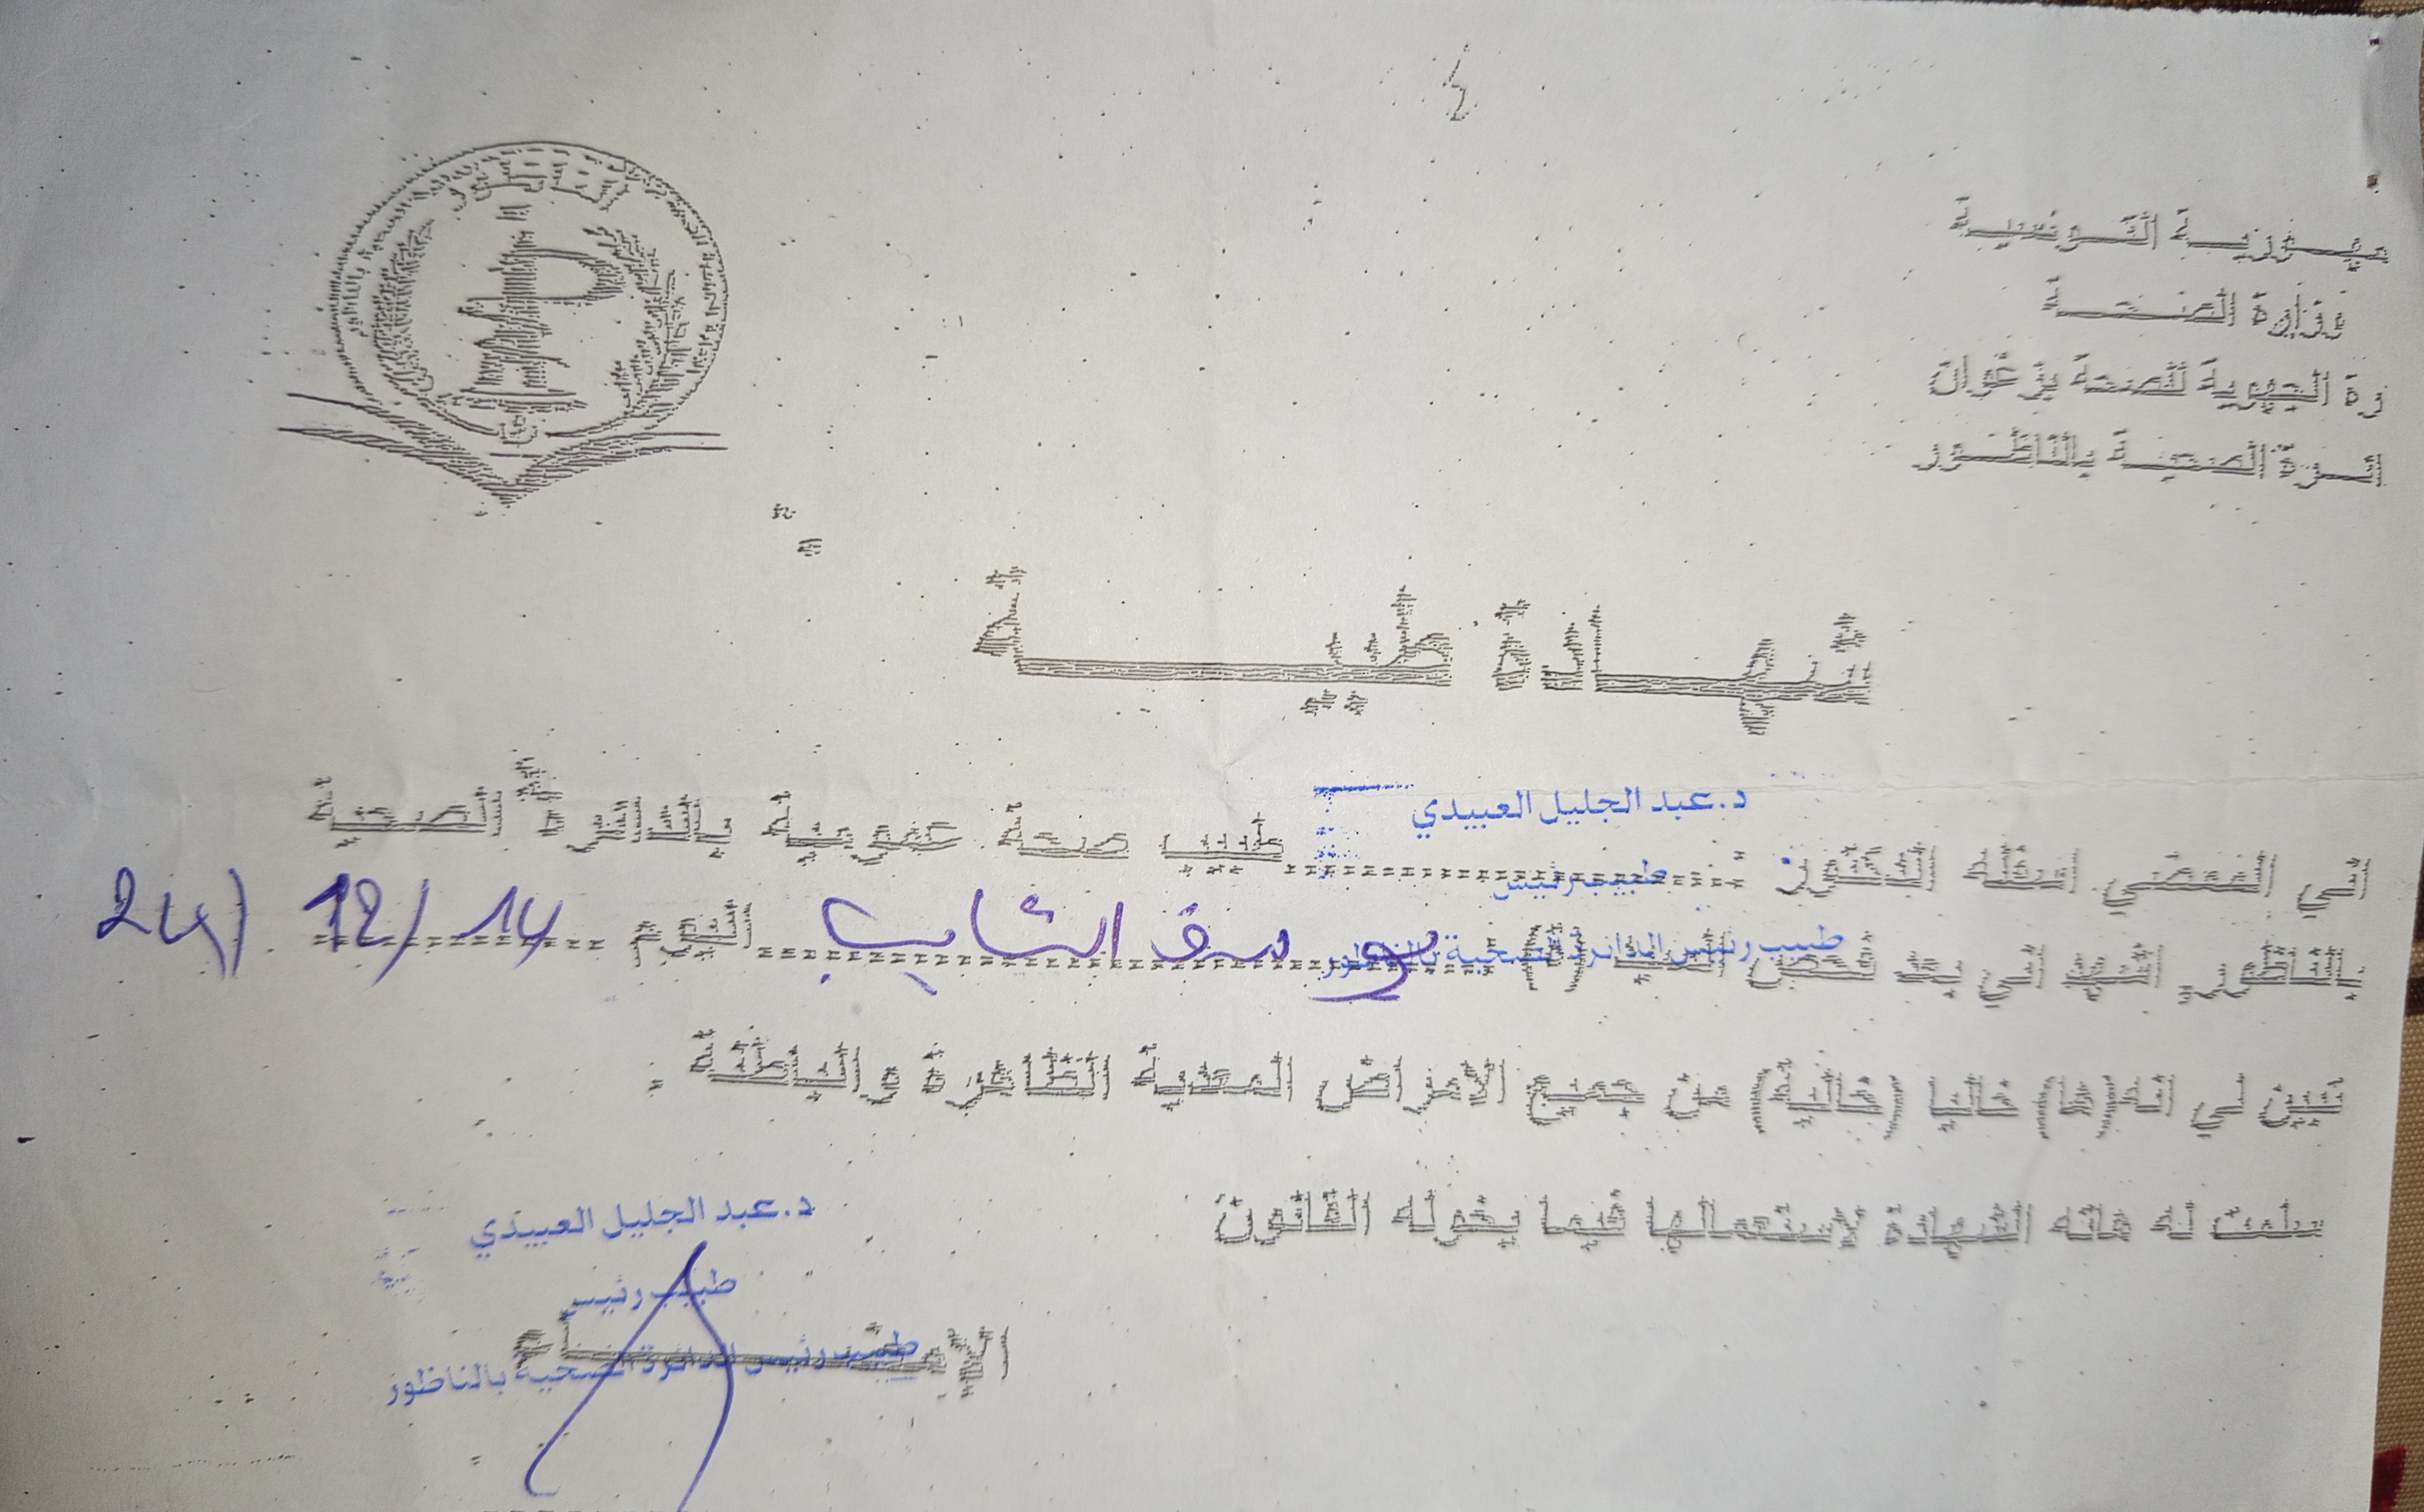 جمهورية التونسية
وزارة الصحة
رة الجهوية للصحة بزغوان
ئرة الصحية بالناظور
شهادة طبية
د.عبد الجليل العبيدي
إني الممضي أسفله الدكتور : طبيب صحة عمومية بالدائرة الصحية
طبيب رئيس
طبيب رئيس الدائرة الصحية بالناظور
بالناظور أشهد أني بعد فحص السيد (ة) يوسف الشايب اليوم 14/ 12/ 24
تبين لي أنه (ها) خاليا (خالية) من جميع الأمراض المعدية الظاهرة والباطنة .
سلمت له هاته الشهادة لاستعمالها فيما يخوله القانون
د.عبد الجليل العبيدي
طبيب رئيس
الإمضاء
طبيب رئيس الدائرة الصحية بالناظور